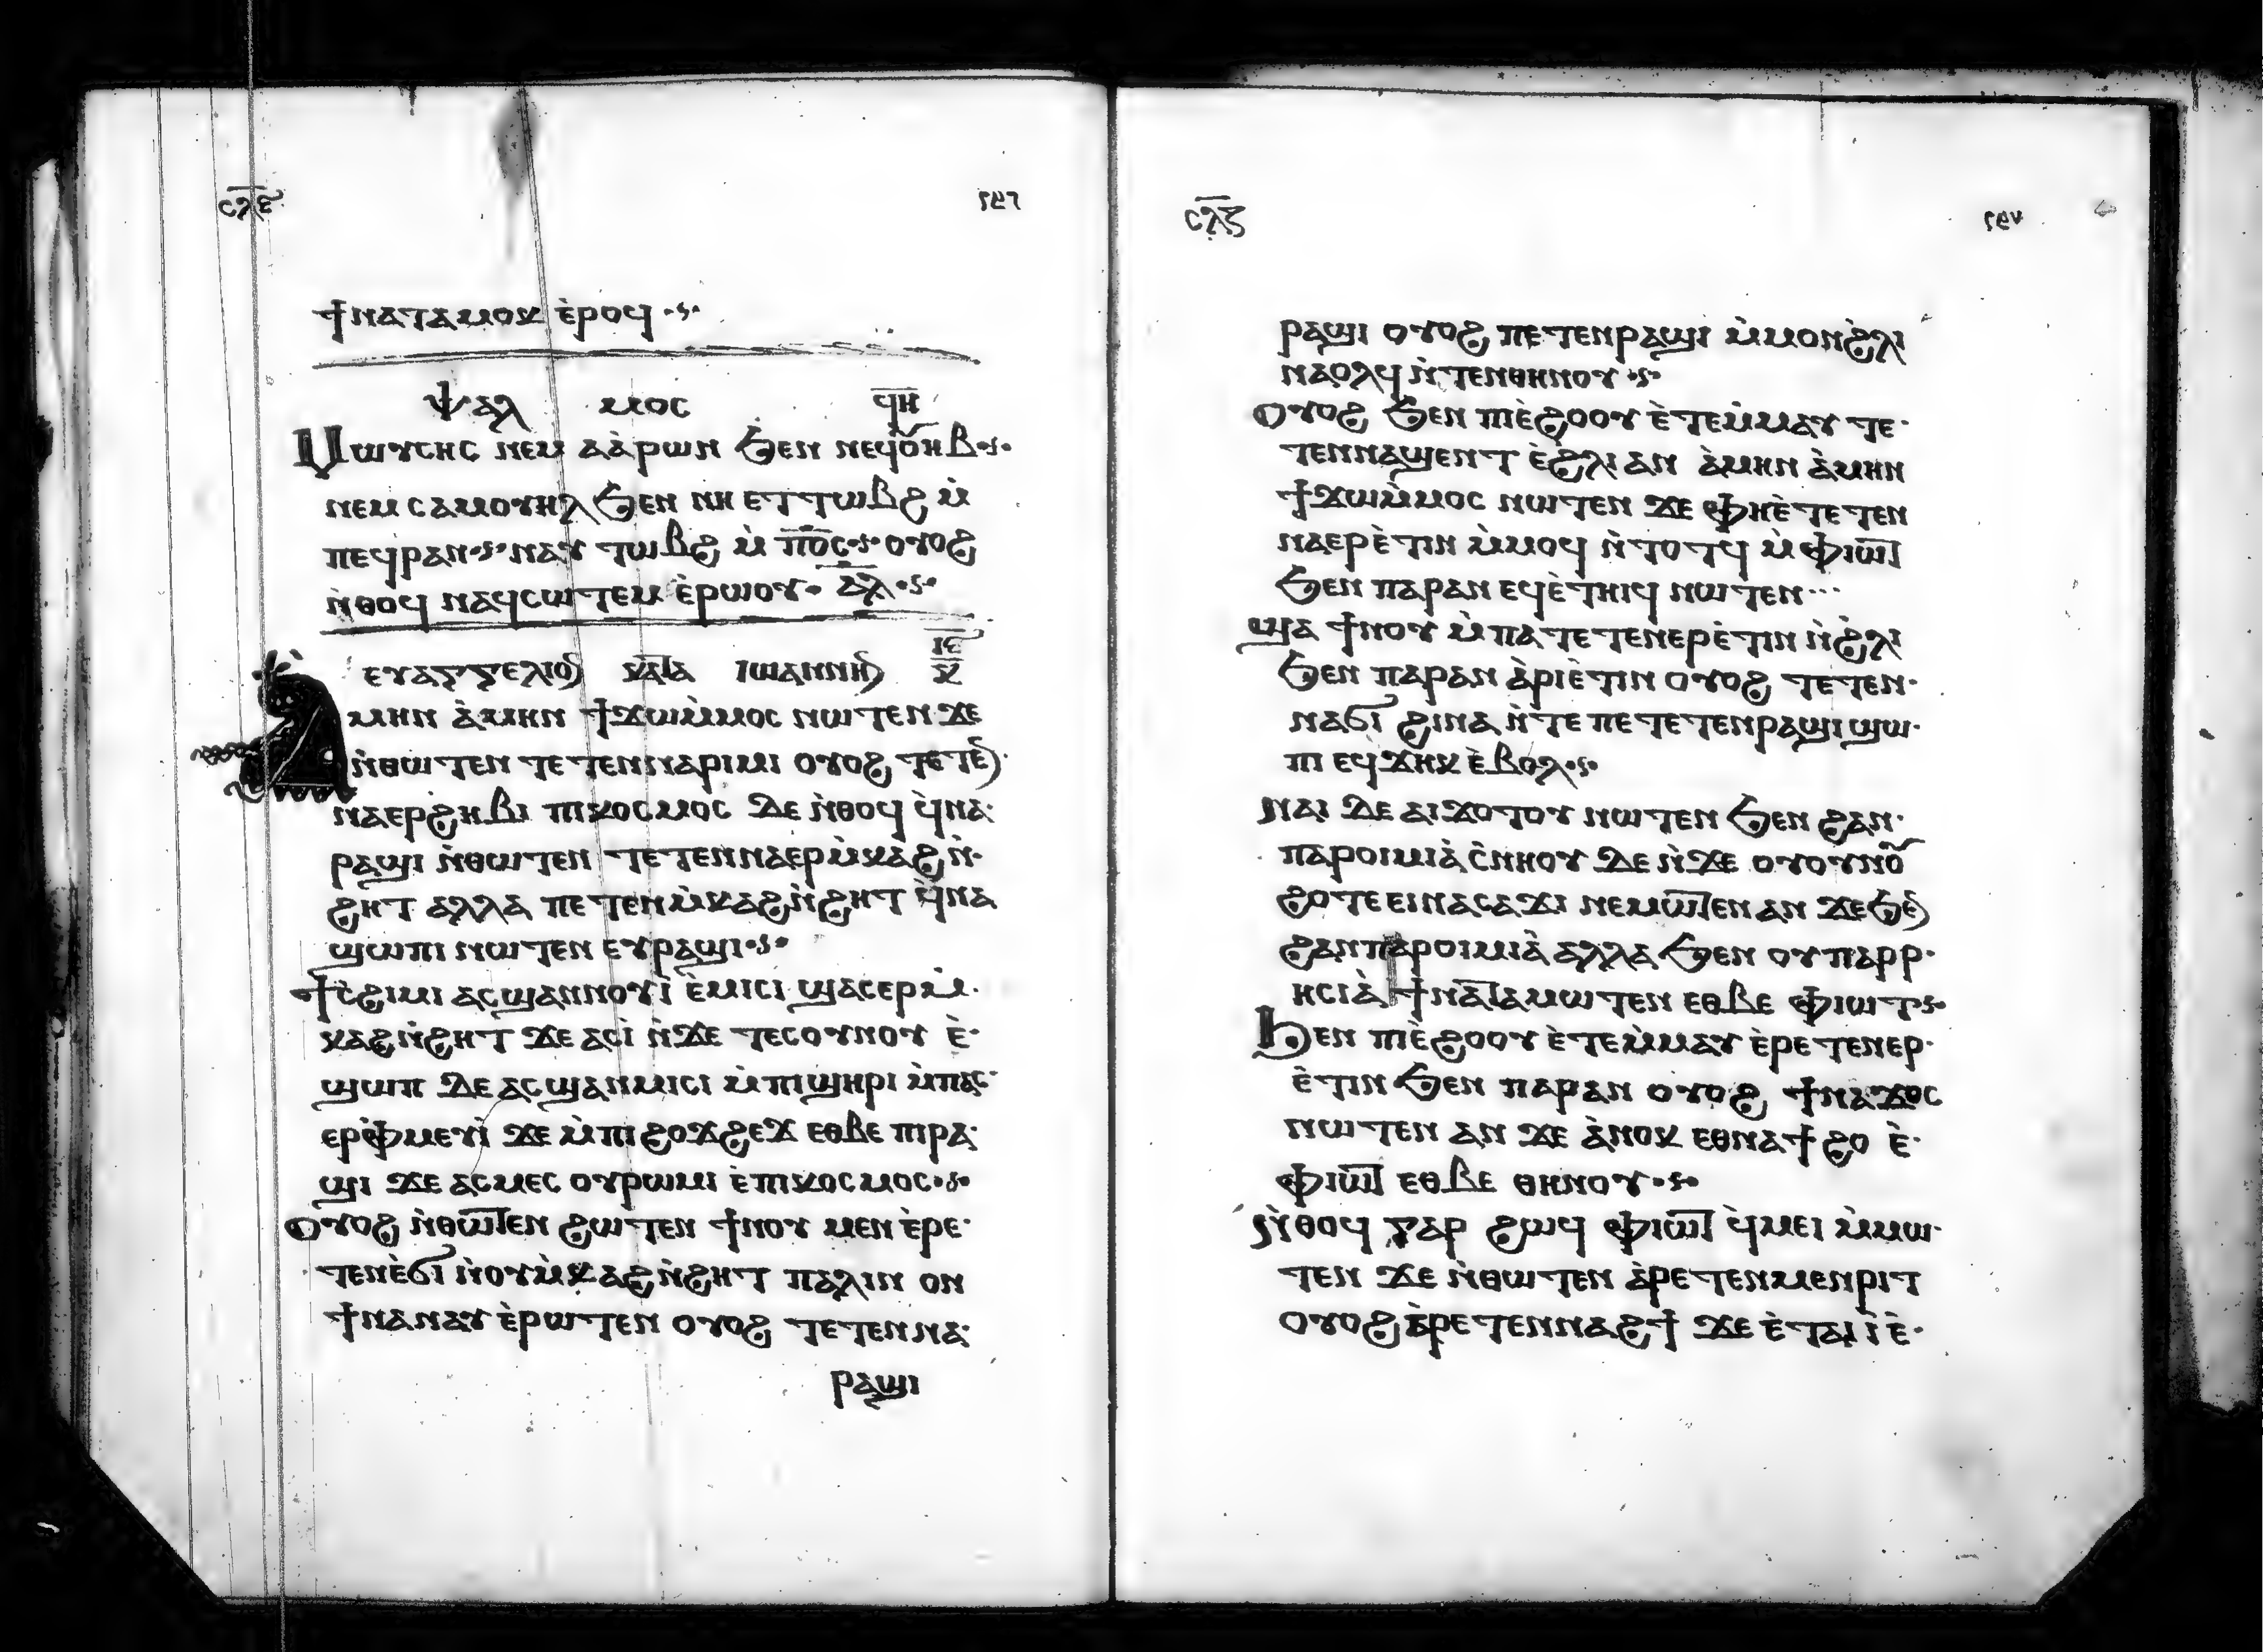 ⲥⲗ̅ⲋ ⲢⲀ٦
ϯⲛⲁⲧⲁⲙⲟⲕ ⲉ̀ⲣⲟϥ
ⲯⲁⲗ ⲙⲟⲥ ϥⲏ
Ⲙⲱⲩⲥⲏⲥ ⲛⲉⲙ ⲁⲁ̀ⲣⲱⲛ ϧⲉⲛ ⲛⲉϥⲟ̅ⲏⲃ
ⲛⲉⲙ ⲥⲁⲙⲟⲩⲏⲗ ϧⲉⲛ ⲛⲏ ⲉⲧⲧⲱⲃϩ ⲙ̀
ⲡⲉϥⲣⲁⲛ ⲛⲁⲩ ⲧⲱⲃϩ ⲙ̀ ⲡⲟ̅ⲥ̅ ⲟⲩⲟϩ
ⲛ̀ⲑⲟϥ ⲛⲁϥⲥⲱⲧⲉⲙ ⲉ̀ⲣⲱⲟⲩ· ⲁ̅ⲗ̅
ⲉⲩⲁⲅⲅⲉⲗⲓⲟ ⲕⲁⲧⲁ ⲓⲱⲁⲛⲛⲏ ⲓⲉ̅ ⲕ̅
Ⲁⲙⲏⲛ ⲁ̀ⲙⲏⲛ ϯϫⲱⲙ̀ⲙⲟⲥ ⲛⲱⲧⲉⲛ ϫⲉ
ⲛ̀ⲑⲱⲧⲉⲛ ⲧⲉⲧⲉⲛⲛⲁⲣⲓⲙⲓ ⲟⲩⲟϩ ⲧⲉⲧⲉ̅
ⲛⲁⲉⲣϩⲏⲃⲓ ⲡⲓⲕⲟⲥⲙⲟⲥ ⲇⲉ ⲛ̀ⲑⲟϥ ϥ̀ⲛⲁ·
ⲣⲁϣⲓ ⲛ̀ⲑⲱⲧⲉⲛ ⲧⲉⲧⲉⲛⲛⲁⲉⲣⲙ̀ⲕⲁϩ ⲛ̀·
ϩⲏⲧ ⲁⲗⲗⲁ ⲡⲉⲧⲉⲛⲙ̀ⲕⲁϩⲛ̀ϩⲏⲧ ϥ̀ⲛⲁ
ϣⲱⲡⲓ ⲛⲱⲧⲉⲛ ⲉⲩⲣⲁϣⲓ
ϯⲥ̀ϩⲓⲙⲓ ⲁⲥϣⲁⲛⲛⲟⲩⲓ̀ ⲉ̀ⲙⲓⲥⲓ ϣⲁⲥⲉⲣⲙ̀·
ⲕⲁϩⲛ̀ϩⲏⲧ ϫⲉ ⲁⲥⲓ̀ ⲛ̀ϫⲉ ⲧⲉⲥⲟⲩⲛⲟⲩ ⲉ̀·
ϣⲱⲡ ⲇⲉ ⲁⲥϣⲁⲛⲙⲓⲥⲓ ⲙ̀ⲡⲓϣⲏⲣⲓ ⲙ̀ⲡⲁⲥ·
ⲉⲣⲫ̀ⲙⲉⲩⲓ̀ ϫⲉ ⲙ̀ⲡⲓϩⲟϫϩⲉϫ ⲉⲑⲃⲉ ⲡⲓⲣⲁ·
ϣⲓ ϫⲉ ⲁⲥⲙⲉⲥ ⲟⲩⲣⲱⲙⲓ ⲉ̀ⲡⲓⲕⲟⲥⲙⲟⲥ
Ⲟⲩⲟϩ ⲛ̀ⲑⲱⲧⲉⲛ ϩⲱⲧⲉⲛ ϯⲛⲟⲩ ⲙⲉⲛ ⲉ̀ⲣⲉ·
ⲧⲉⲛⲉ̀ϭⲓ ⲛ̀ⲟⲩⲙ̀ⲕⲁϩⲛ̀ϩⲏⲧ ⲡⲁⲗⲓⲛ ⲟⲛ
ϯⲛⲁⲛⲁⲩ ⲉ̀ⲣⲱⲧⲉⲛ ⲟⲩⲟϩ ⲧⲉⲧⲉⲛⲛⲁ·
ⲣⲁϣⲓ
ⲥⲗ̅ⲍ
ⲣⲁϣⲓ ⲟⲩⲟϩ ⲡⲉⲧⲉⲛⲣⲁϣⲓ ⲙ̀ⲙⲟⲛϩ̀ⲗⲓ
ⲛⲁⲟⲗϥ ⲛ̀ⲧⲉⲛⲑⲏⲛⲟⲩ
Ⲟⲩⲟϩ ϧⲉⲛ ⲡⲓⲉ̀ϩⲟⲟⲩ ⲉ̀ⲧⲉⲙ̀ⲙⲁⲩ ⲧⲉ·
ⲧⲉⲛⲛⲁϣⲉⲛⲧ ⲉ̀ϩ̀ⲗⲓ ⲁⲛ ⲁ̀ⲙⲏⲛ ⲁ̀ⲙⲏⲛ
ϯϫⲱⲙ̀ⲙⲟⲥ ⲛⲱⲧⲉⲛ ϫⲉ ⲫⲏⲉ̀ⲧⲉⲧⲉⲛ
ⲛⲁⲉⲣⲉ̀ⲧⲓⲛ ⲙ̀ⲙⲟϥ ⲛ̀ⲧⲟⲧϥ ⲙ̀ⲫⲓⲱⲧ
ϧⲉⲛ ⲡⲁⲣⲁⲛ ⲉϥⲉ̀ⲧⲏⲓϥ ⲛⲱⲧⲉⲛ···
ϣⲁ ϯⲛⲟⲩ ⲙ̀ⲡⲁⲧⲉⲧⲉⲛⲉⲣⲉ̀ⲧⲓⲛ ⲛ̀ϩ̀ⲗⲓ
ϧⲉⲛ ⲡⲁⲣⲁⲛ ⲁ̀ⲣⲓⲉ̀ⲧⲓⲛ ⲟⲩⲟϩ ⲧⲉⲧⲉⲛ·
ⲛⲁϭⲓ ϩⲓⲛⲁ ⲛ̀ⲧⲉ ⲡⲉⲧⲉⲧⲉⲛⲣⲁϣⲓ ϣⲱ·
ⲡⲓ ⲉϥϫⲏⲕ ⲉ̀ⲃⲟⲗ
Ⲛⲁⲓ ⲇⲉ ⲁⲓϫⲟⲧⲟⲩ ⲛⲱⲧⲉⲛ ϧⲉⲛ ϩⲁⲛ·
ⲡⲁⲣⲟⲓⲙⲓⲁ̀ ⲥ̀ⲛⲏⲟⲩ ⲇⲉ ⲛ̀ϫⲉ ⲟⲩⲟⲩⲛⲟ̅
ϩⲟⲧⲉ ⲉⲓⲛⲁⲥⲁϫⲓ ⲛⲉⲙⲱⲧⲉⲛ ⲁⲛ ϫⲉ ϧⲉ̅
ϩⲁⲛⲡⲁⲣⲟⲓⲙⲓⲁ̀ ⲁⲗⲗⲁ ϧⲉⲛ ⲟⲩⲡⲁⲣⲣ·
ⲏⲥⲓⲁ̀ ϯⲛⲁⲧⲁⲙⲱⲧⲉⲛ ⲉⲑⲃⲉ ⲫⲓⲱⲧ
Ϧⲉⲛ ⲡⲓⲉ̀ϩⲟⲟⲩ ⲉ̀ⲧⲉⲙ̀ⲙⲁⲩ ⲉ̀ⲣⲉⲧⲉⲛⲉⲣ·
ⲉ̀ⲧⲓⲛ ϧⲉⲛ ⲡⲁⲣⲁⲛ ⲟⲩⲟϩ ϯⲛⲁϫⲟⲥ
ⲛⲱⲧⲉⲛ ⲁⲛ ϫⲉ ⲁ̀ⲛⲟⲕ ⲉⲑⲛⲁϯϩⲟ ⲉ̀·
ⲫⲓⲱⲧ ⲉⲑⲃⲉ ⲑⲏⲛⲟⲩ
Ⲛ̀ⲑⲟϥ ⲅⲁⲣ ϩⲱϥ ⲫⲓⲱⲧ ϥ̀ⲙⲉⲓ ⲙ̀ⲙⲱ·
ⲧⲉⲛ ϫⲉ ⲛ̀ⲑⲱⲧⲉⲛ ⲁ̀ⲣⲉⲧⲉⲛⲙⲉⲛⲣⲓⲧ
ⲟⲩⲟϩ ⲁ̀ⲣⲉⲧⲉⲛⲛⲁϩϯ ϫⲉ ⲉ̀ⲧⲁⲓⲓ̀ ⲉ̀·